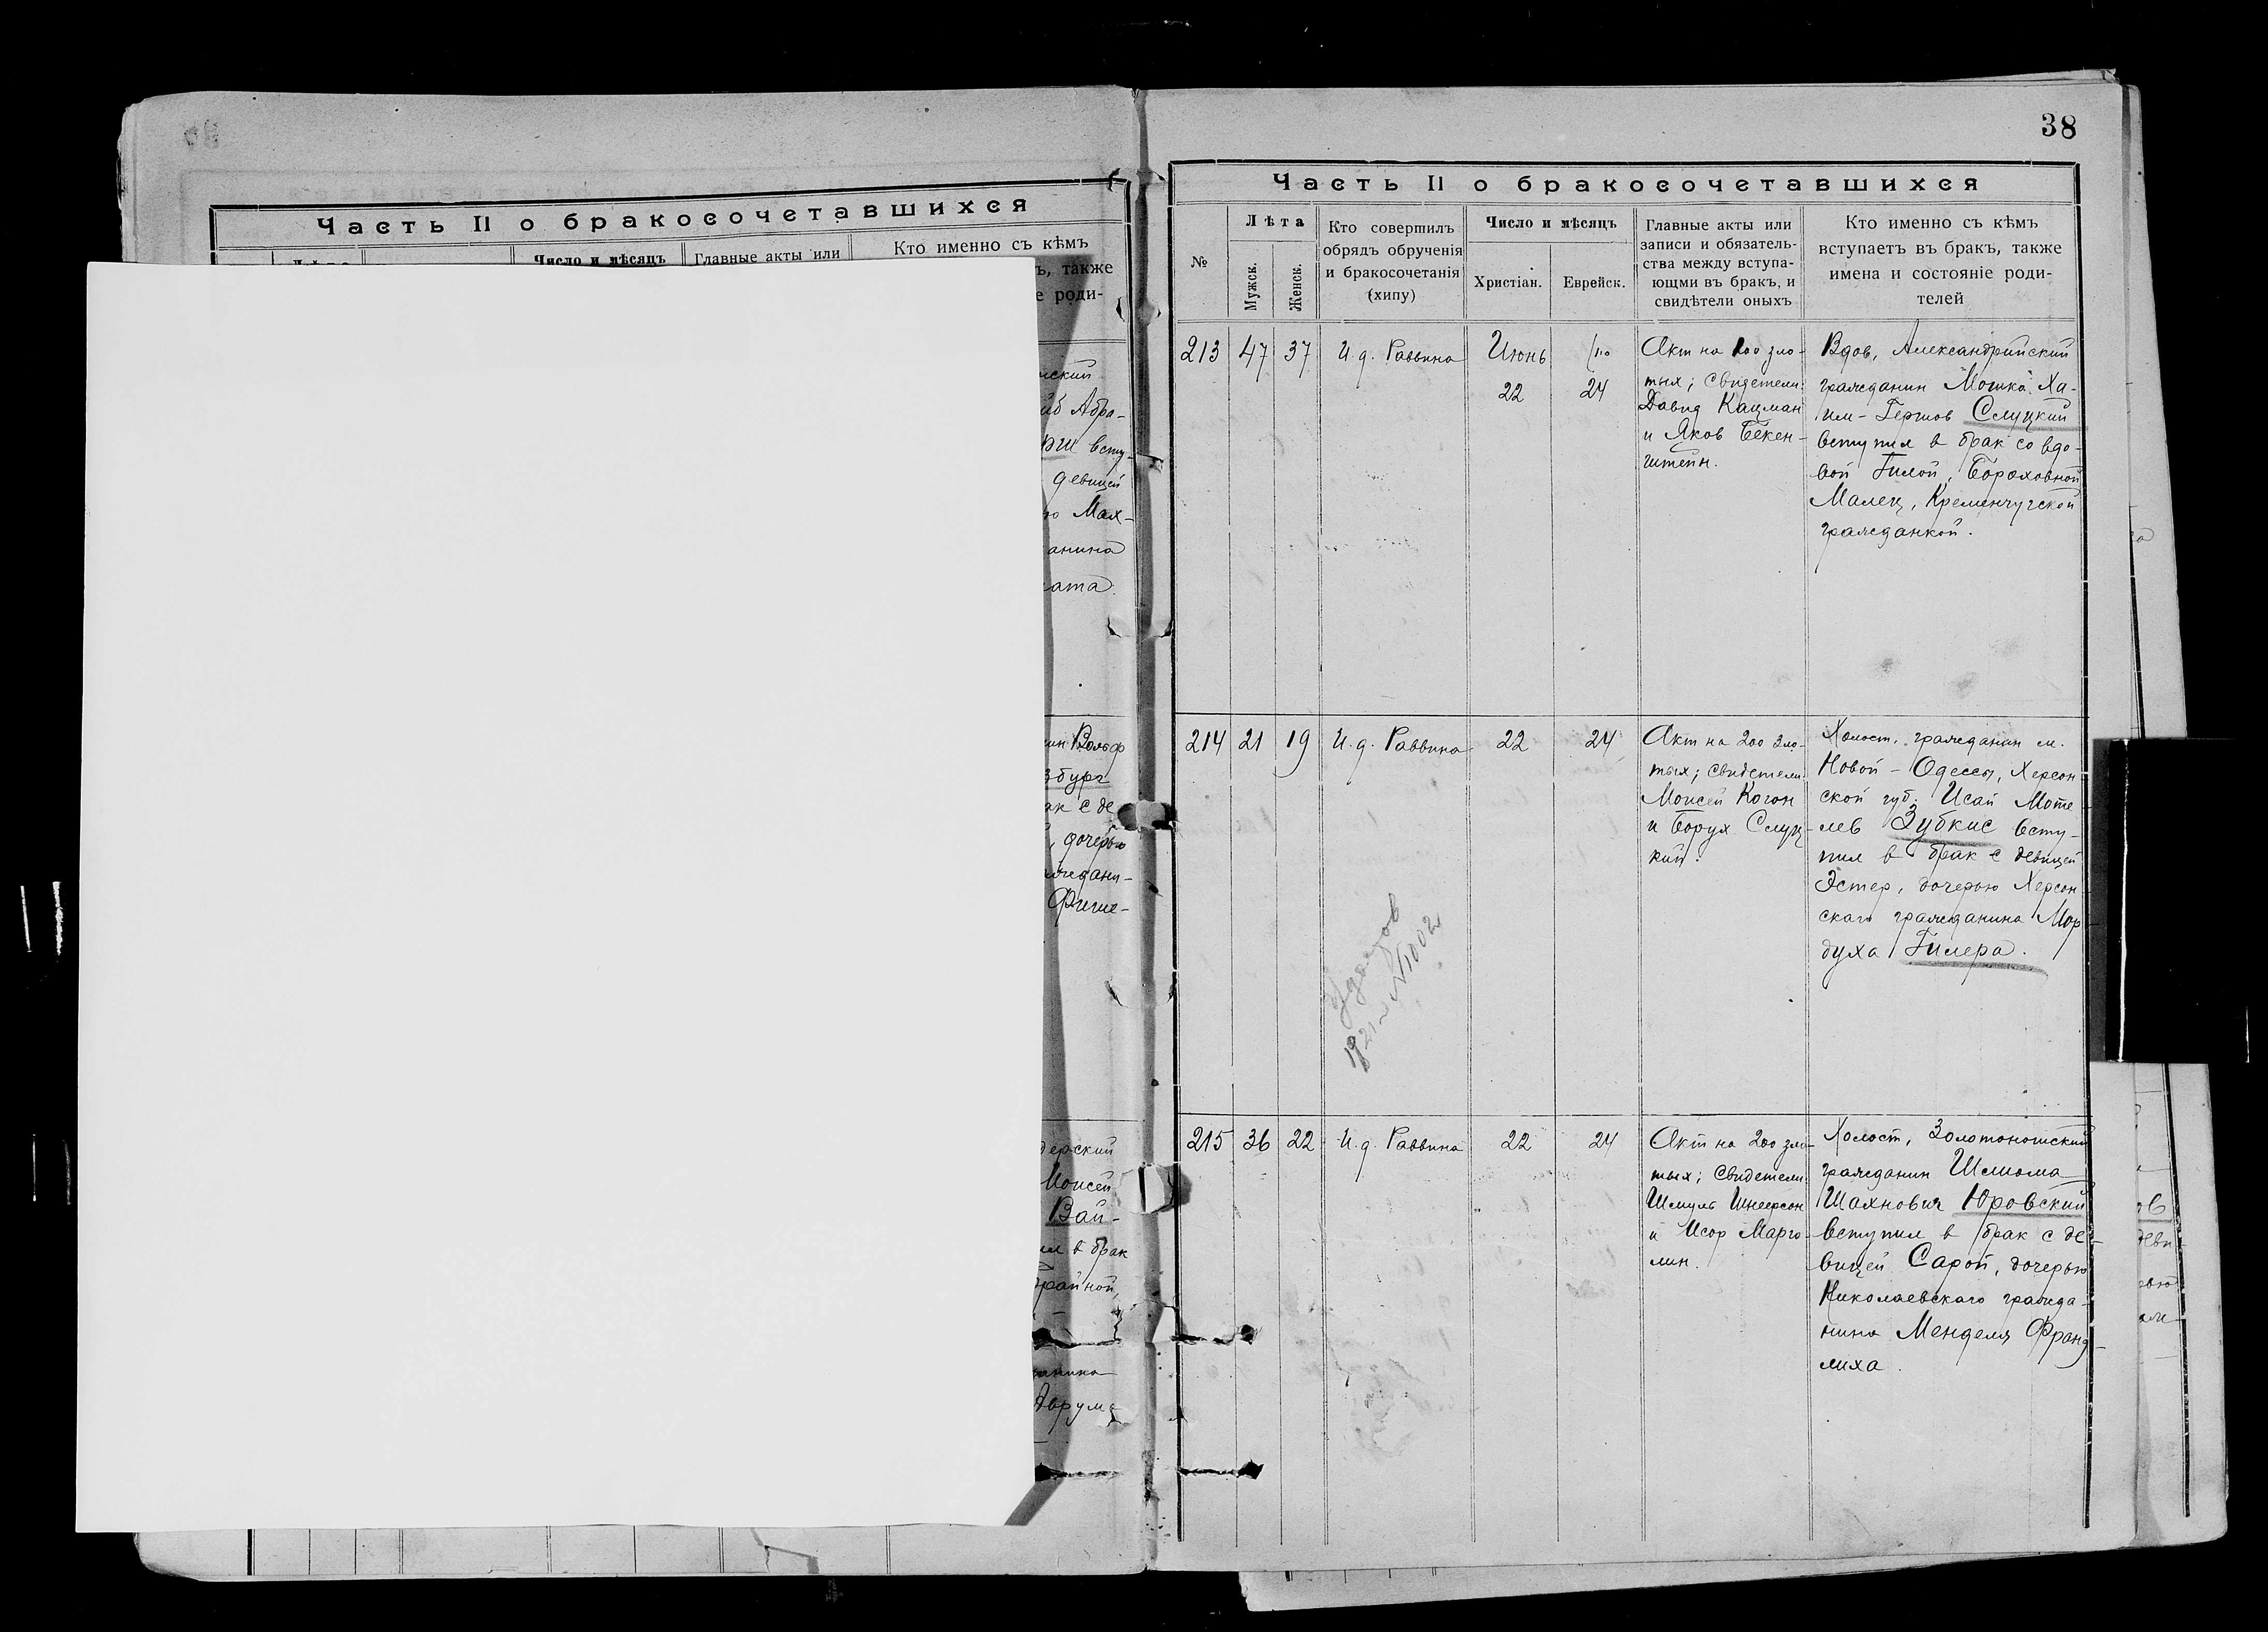 Часть II о бракосочетавшихся
Число и мѣсяцъ
Главные акты или
Кто именно съ кѣмъ
также
роди-
Абра-
всту-
девицей
Мах-
Вольф
дочерью
Фише-
Моисей
Вай-
в брак
38
Часть II о бракосочетавшихся
№
Лѣта
Мужск.
Женск.
Кто совершилъ
обрядъ обрученія
и бракосочетанія
(хипу)
Число и мѣсяцъ
Христіан.
Еврейск.
Главные акты или
записи и обязатель-
ства между вступа-
ющми въ бракъ, и
свидѣтели оныхъ
Кто именно съ кѣмъ
вступаетъ въ бракъ, также
имена и состояніе роди-
телей
213
47
37
И. д. Раввина
Июнь
22
24
Акт на 200 зло-
тых; свидетели:
Давид Кацман
и Яков Бекен-
штейн.
Вдов, Александрийский
гражданин Мошка Ха-
им-Гершов Слуцкий
вступил в брак со вдо-
вой Гилой, Бороховной
Малец, Кременчугской
гражданкой.
214
21
19
И. д. Раввина
22
24
Акт на 200 зло-
тых; свидетели
Моисей Коган
и Борух Слуц-
кий.
Холост, гражданин м.
Новой-Одессы, Херсон
ской губ. Исай Моте
лев Зубкис всту-
пил в брак с девицей
Эстер, дочерью Херсон-
скаго гражданина Мор
духа Гилера.
1921 № 1002
215
36
22
И. д. Раввина
22
24
Акт на 200 зло-
тых; свидетели
Шмуль Шнеерсон
и Исор Марго-
лин.
Холост, Золотоношский
гражданин Шлиома
Шахнович Юровский
вступил в брак с де-
вицей Сарой, дочерью
Николаевскаго гражда-
нина Менделя Франд-
лиха.